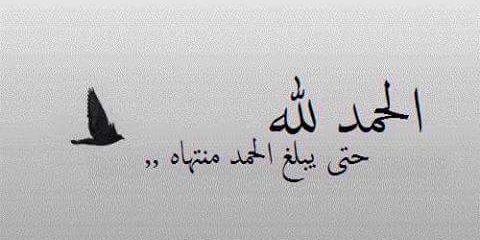 الحمد لله
حتى يبلغ الحمد منتهاه ,,